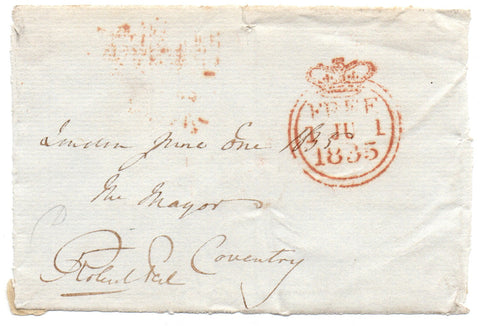 FREE
JU 1
1835
London June One 1835
The Mayor
Coventry
Robert Peel